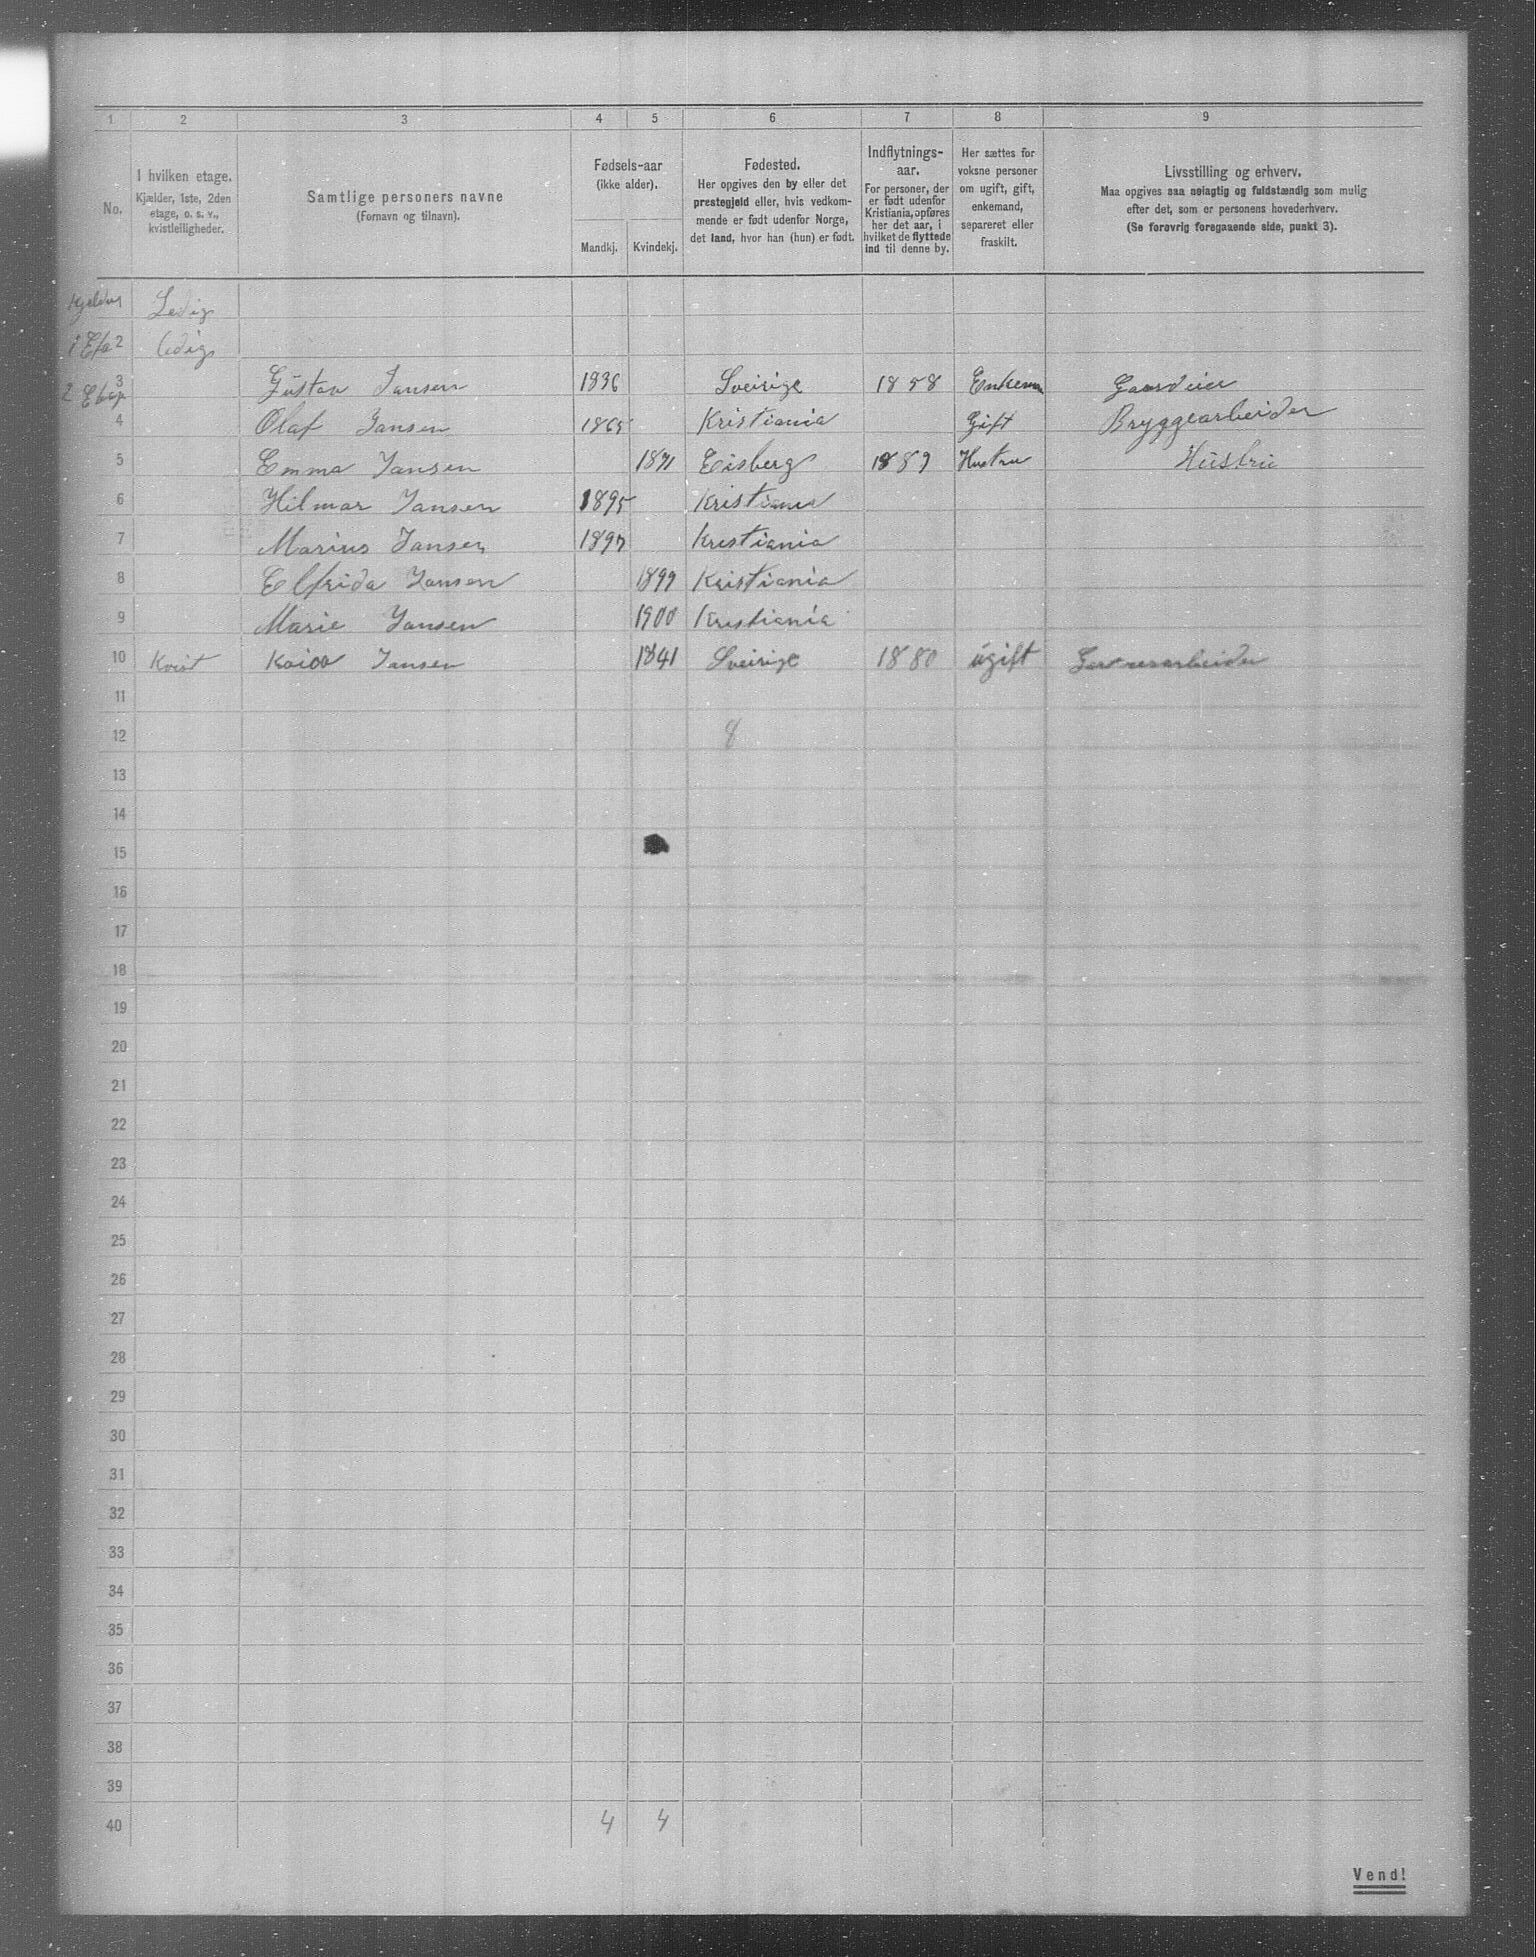 1 2 3 4 5 6 7 8 9
No.
I hvilken etage.
Kjælder, 1ste, 2den
etage, o. s. v.,
kvistleiligheder.
Samtlige personers navne
(Fornavn og tilnavn).
Fødsels-aar
(ikke alder).
Mandkj. Kvindekj.
Fødested.
Her opgives den by eller det
prestegjeld eller, hvis vedkom-
mende er født udenfor Norge,
det land, hvor han (hun) er født.
Indflytnings-
aar.
For personer, der
er født udenfor
Kristiania, opføres
her det aar, i
hvilket de flyttede
ind til denne by.
Her sættes for
voksne personer
om ugift, gift,
enkemand,
separeret eller
fraskilt.
Livsstilling og erhverv.
Maa opgives saa nøiagtig og fuldstændig som mulig
efter det, som er personens hovederhverv.
(Se forøvrig foregaaende side, punkt 3).
Kjelder Ledig
1 Eta 2 Ledig
2 Etage 3 Gustav Jansen 1836 Sveirige 1858 Enkem Gaardeier
4 Olaf Jansen 1865 Kristiania Gift Bryggearbeider
5 Emma Jansen 1871 Eisberg 1889 Hustru Hustru
6 Hilmar Jansen 1895 Kristiania
7 Marius Jansen 1897 Kristiania
8 Elfrida Jansen 1899 Kristiania
9 Marie Jansen 1900 Kristiania
10 Kvist Jansen 1841 Sveirige 1880 ugift Gartnerarbeider
11
12 8
13
14
15
16
17
18
19
20
21
22
23
24
25
26
27
28
29
30
31
32
33
34
35
36
37
38
39
40 4 4
Vend!